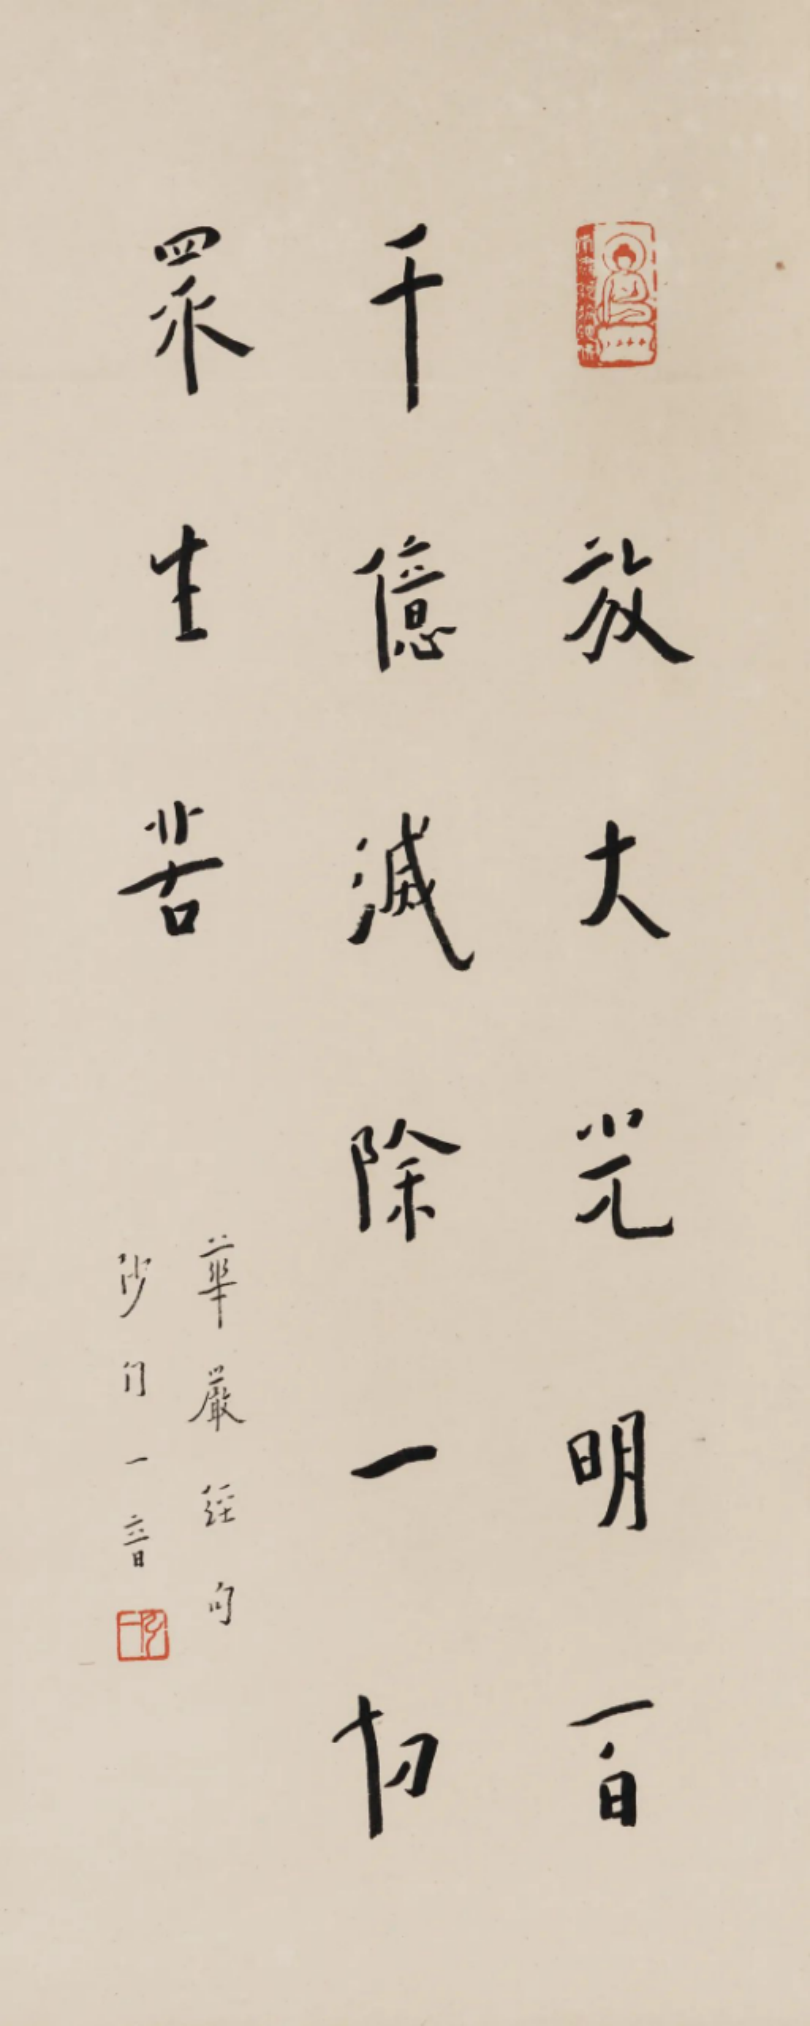 放大光明百
千億滅除一切
眾生苦
華嚴經句
沙门一音